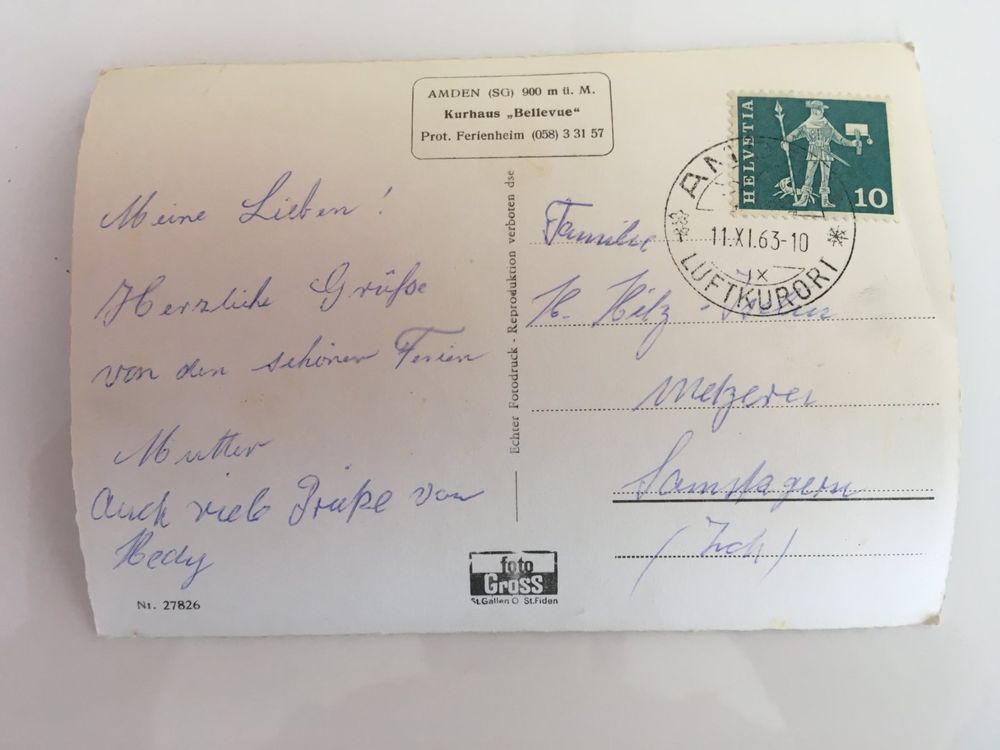 AMDEN (SG) 900 m ü. M.
Kurhaus „Bellevue"
Prot. Ferienheim (058) 3 31 57
HELVETIA
10
11.XI.63-10
LUFTKURORT
Meine Lieben!
Herzliche Grüße
von den schönen Ferien
Mutter
Auch viele Grüße von
Hedy
Echter Fotodruck - Reproduktion verboten dse
Familie
H. Hitz
Metzgerei
Samstagern
(Zch)
Nr. 27826
foto
Gross
St.Gallen O St.Fiden